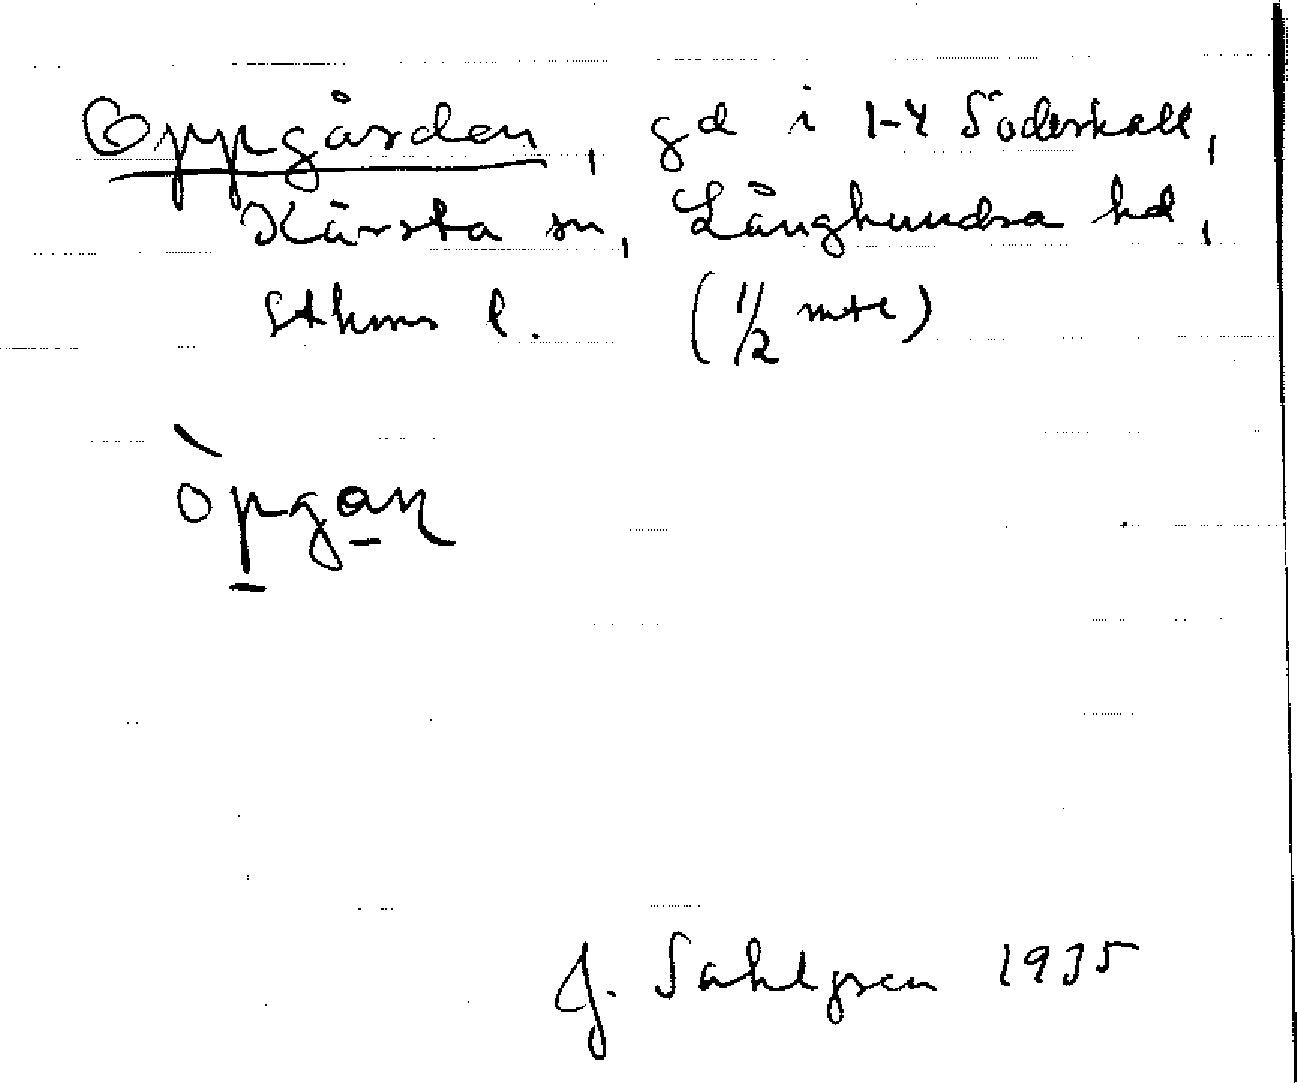 Oppgården, gd i 1-4 Söderhall,
Kårsta sn, Långhundra hd,
Sthms l. (1/2 mtl)
òpgan
J. Sahlgren 1935